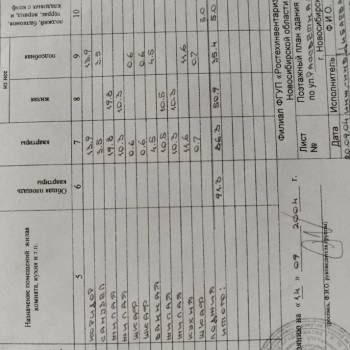 Назначение помещений: жилая
комната, кухня и т.п.
Общая площадь
квартиры
квартиры
жилая
подсобная
лоджий, балконов,
террас, веранд и
кладовых с коэф
5 6 7 8 9 10
коридор 13.9 13.9
санузел 3.5 3.5
жилая 19.8 19.8
жилая 10.3 10.3
шкаф 0.6 0.6
шкаф 0.6 0.6
ванная 4.5 4.5
жилая 10.5 10.5
жилая 10.3 10.3
кухня 11.6 11.6
шкаф 0.7 0.7
лоджия 5.0
итого: 91.3 86.3 50.9 35.4 5.0
"14" 09 2004 г.
Филиал ФГУП «Ростехинвентариз
Новосибирской области
Лист
№
Поэтажный план здания
по ул.
г. Новосибирс
Дата
Исполнитель
Ф.И.О.